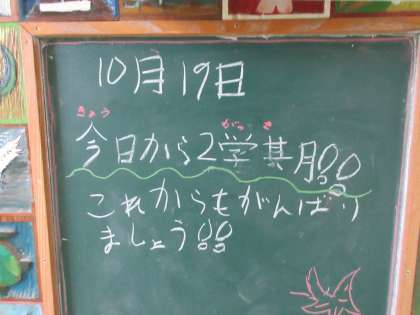 10月19日
きょう がっ き
今日から2学期!!
これからもがんばり
ましょう!!